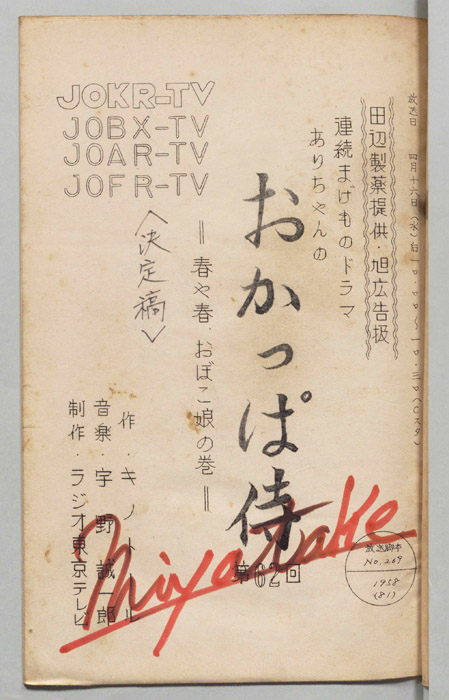 放送日 四月十六日(水)
田辺製薬提供・旭広告扱
連続まげものドラマ
ありちゃんの
おかっぱ侍
第62回
=春や春、おぼこ娘の巻=
JOKR-TV
JOBX-TV
JOAR-TV
JOFR-TV
<決定稿>
作・キノトール
音楽・宇野誠一郎
制作・ラジオ東京テレビ
放送脚本
No.269
1958
(81)
Miyatake